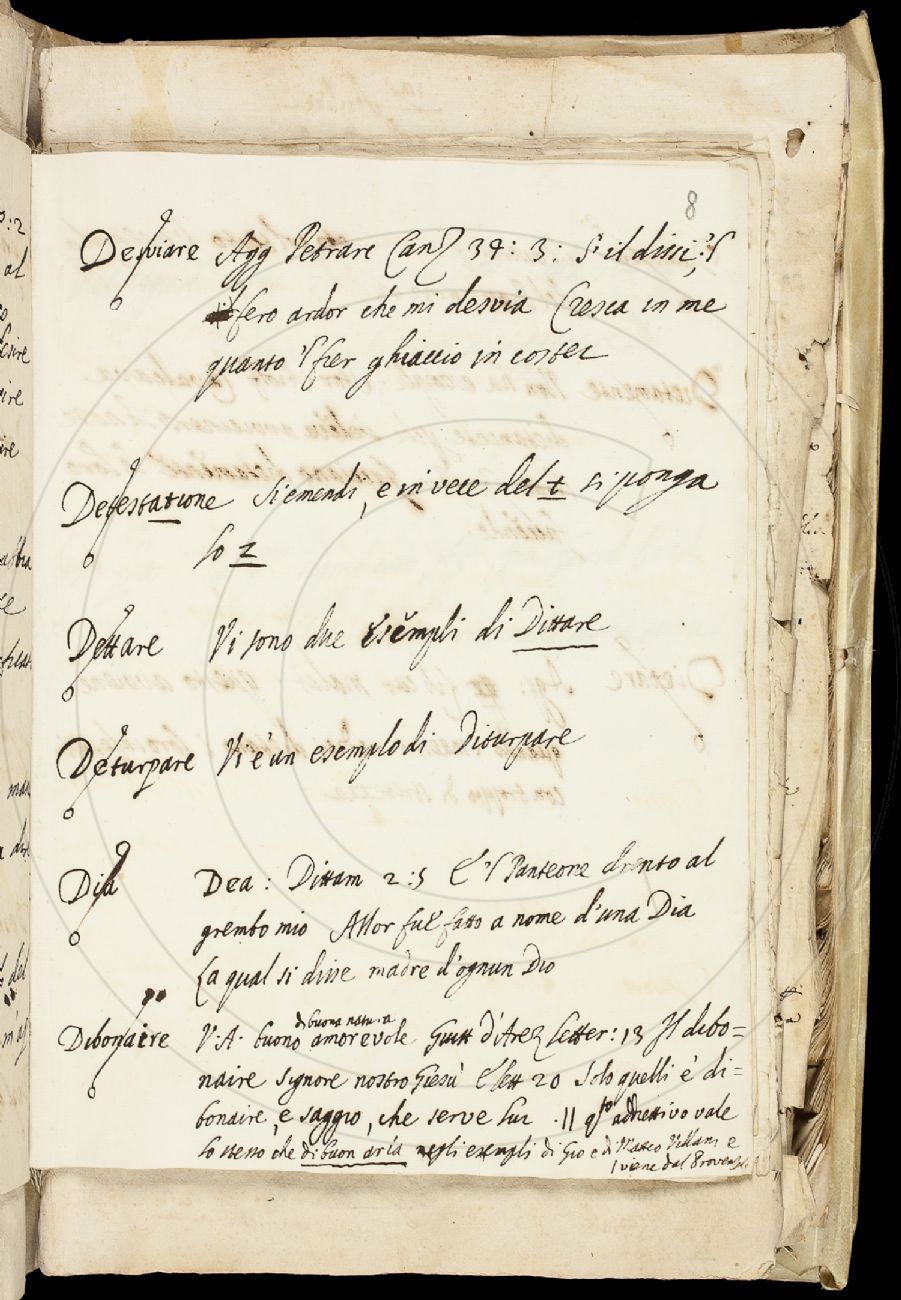 8
Desviare Agg Petrare Canz 34: 3: S'il dissi, 'l
fero ardor che mi desvia Cresca in me
quanto 'l fier ghiaccio in costei
Detestatione si emendi, e in vece del t si ponga
lo z
Dettare Vi sono due esempli di Dittare
Deturpare Vi è un esemplo di Diturpare
Dia Dea: Dittam 2:5 E 'l Panteone drento al
grembo mio Allor fue fatto a nome d'una Dia
La qual si disse madre d'ognun Dio
di buona natura
Dibonaire V.A. buono amorevole Guitt d'Arez Letter: 13 Il dibo=
naire signore nostro Giesù E lett 20 Solo quelli è di=
bonaire, e saggio, che serve lui .|| qto adiettivo vale
lo stesso che di buon aria negli esempli di Gio e di Matteo Villani e
viene dal Provenzal